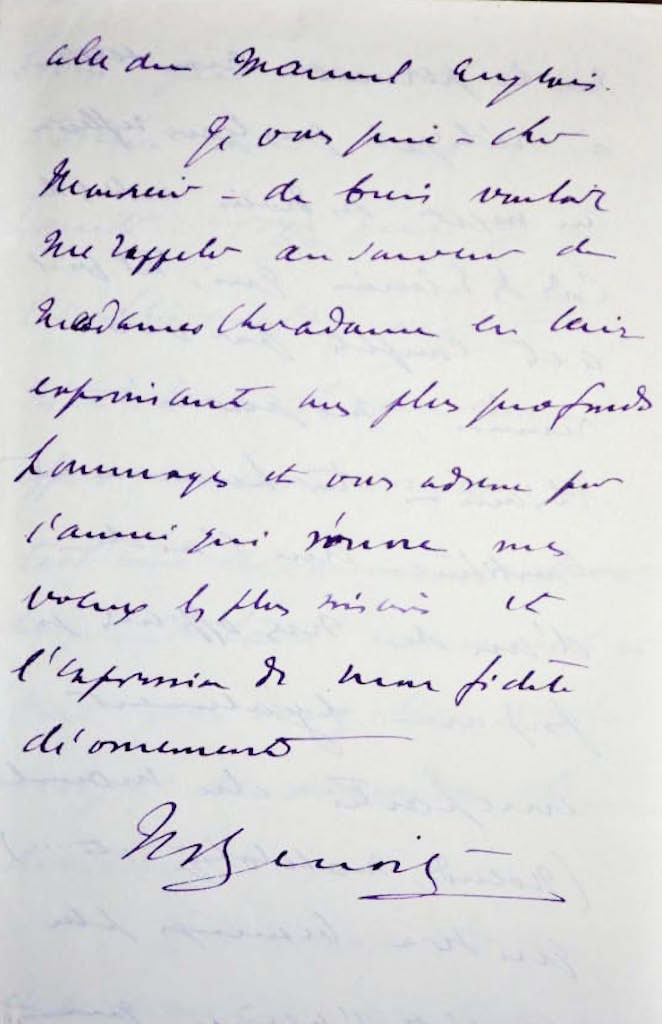 celle du Manuel Anglais.
Je vous prie - cher
Monsieur - de bien vouloir
me rappeler au souvenir de
Mesdames Cheradame en leur
exprimant mes plus profonds
hommages et vous adresse pour
l'année qui s'ouvre mes
voeux les plus sincères et
l'expression de mon fidèle
dévouement
Benoist